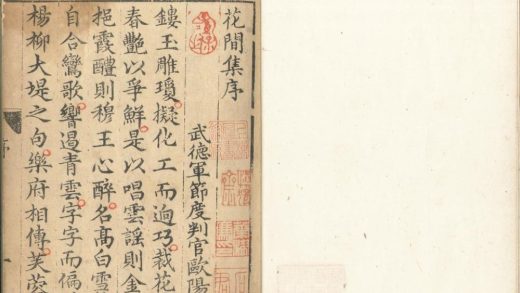 花間集序
武德軍節度判官歐陽
鏤玉雕瓊擬化工而逈巧裁花
春艷以爭鮮是以唱雲謠則金
挹霞醴則穆王心醉名高白雪
自合鸞歌響遏青雲字字而偏
楊柳大堤之句樂府相傳芙蓉
序